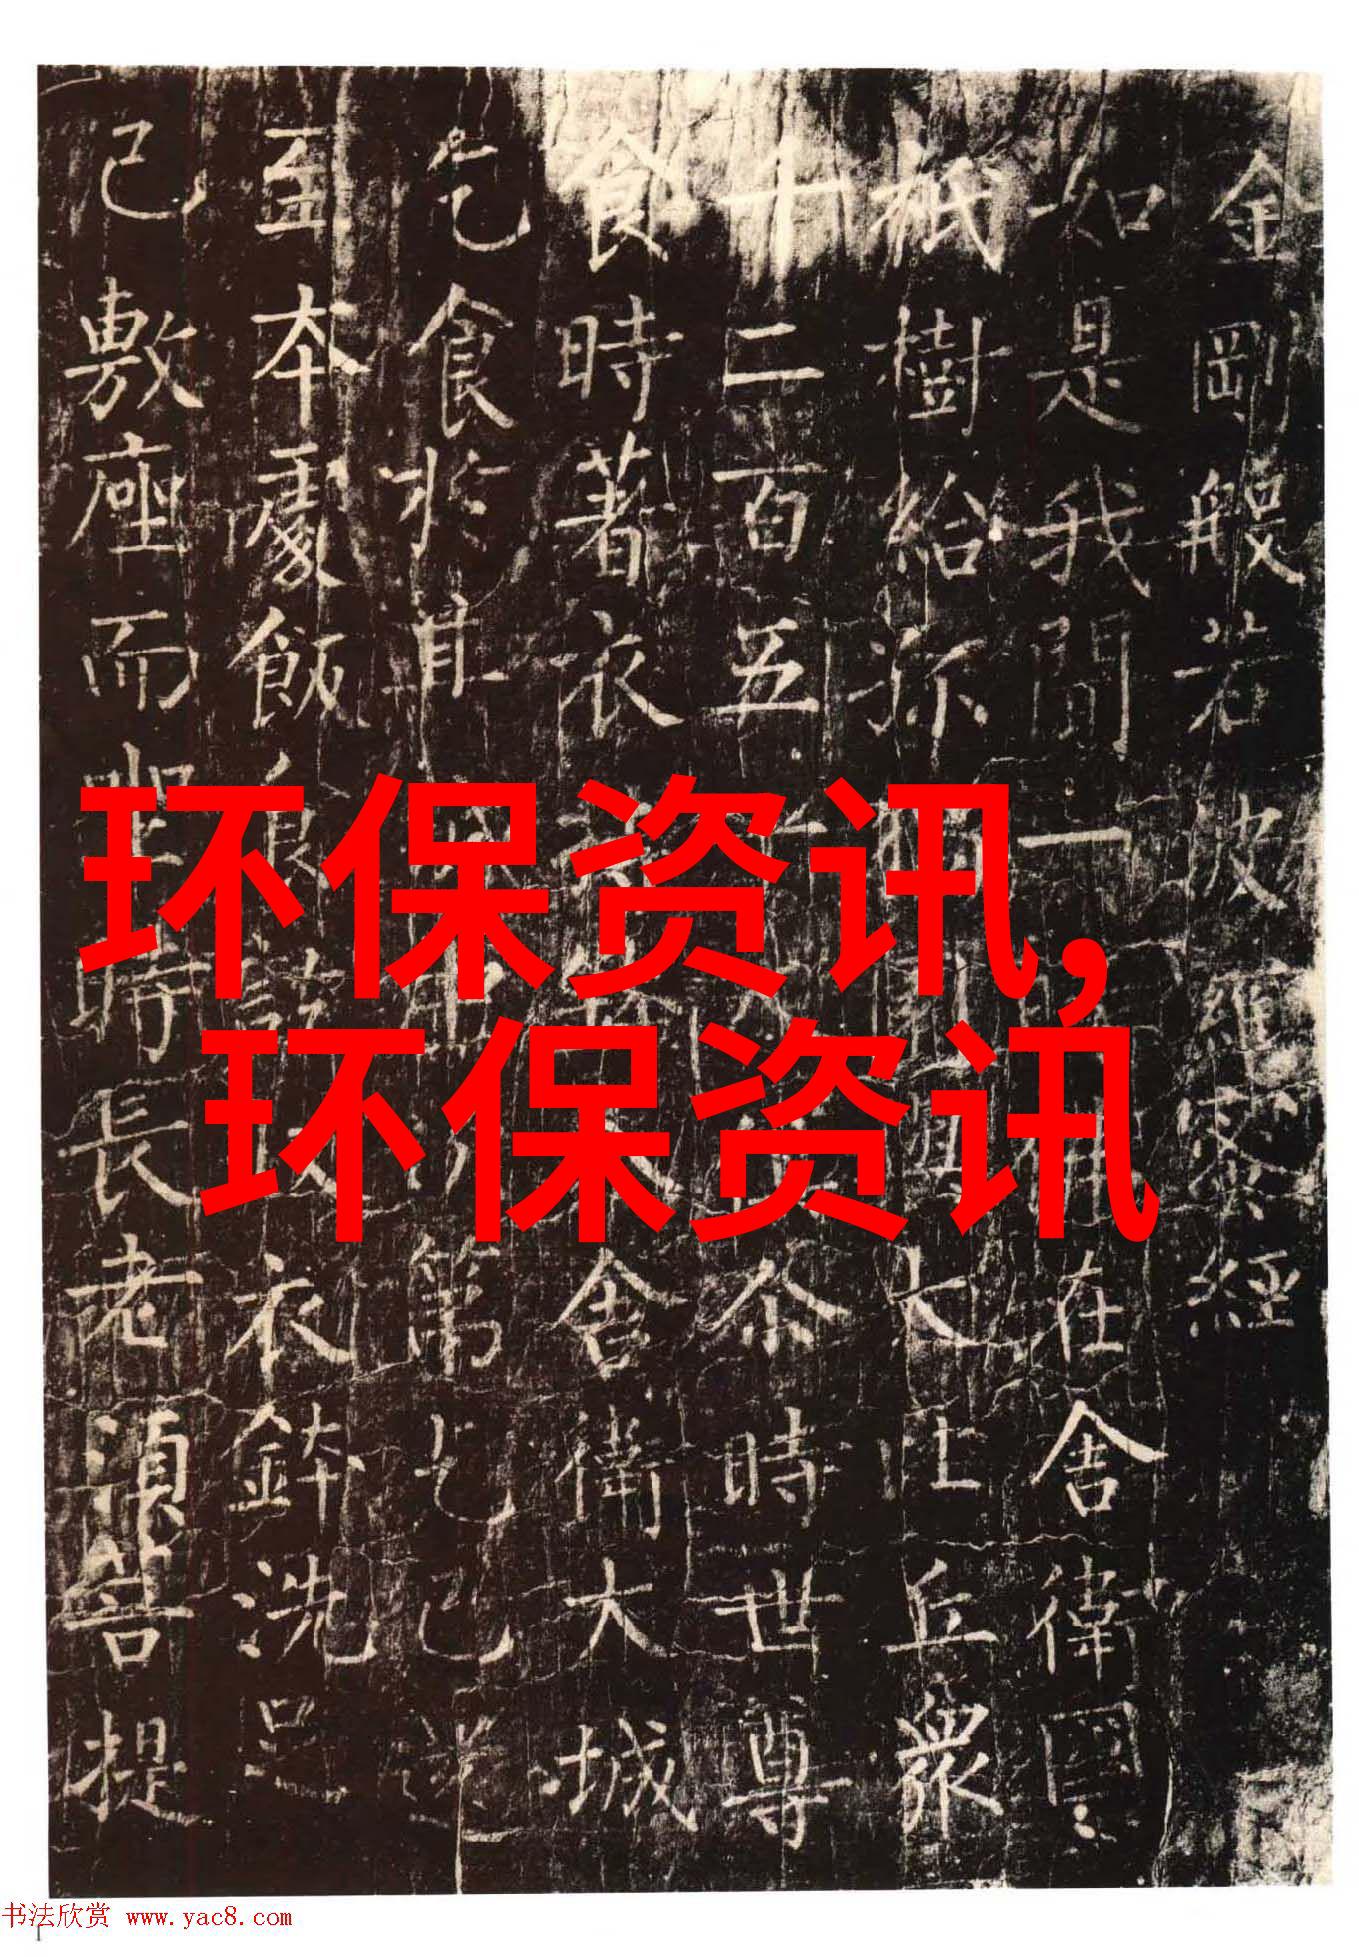 金剛般若波羅蜜經
如是我聞一在舍衛國
祇樹給孤大比丘衆
十二百五尒時世尊
食時著衣舍衛大城
乞食於其第乞已還
至本處飯食衣鉢洗足
已敷座而坐時長老須菩提
环保资讯,
环保资讯
书法欣赏 www.yac8.com